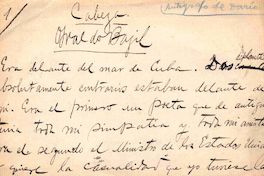 1/
Cabeza
(Autógrafo de Darío)
Era delante del mar de Cuba. Dos
absolutamente contrarios estaban delante de
mi. Era el primero un poeta que de antiguo
tenía toda mi simpatía y toda mi
era el segundo el Ministro de los Estados Unidos
quiere la casualidad que yo tuviese la